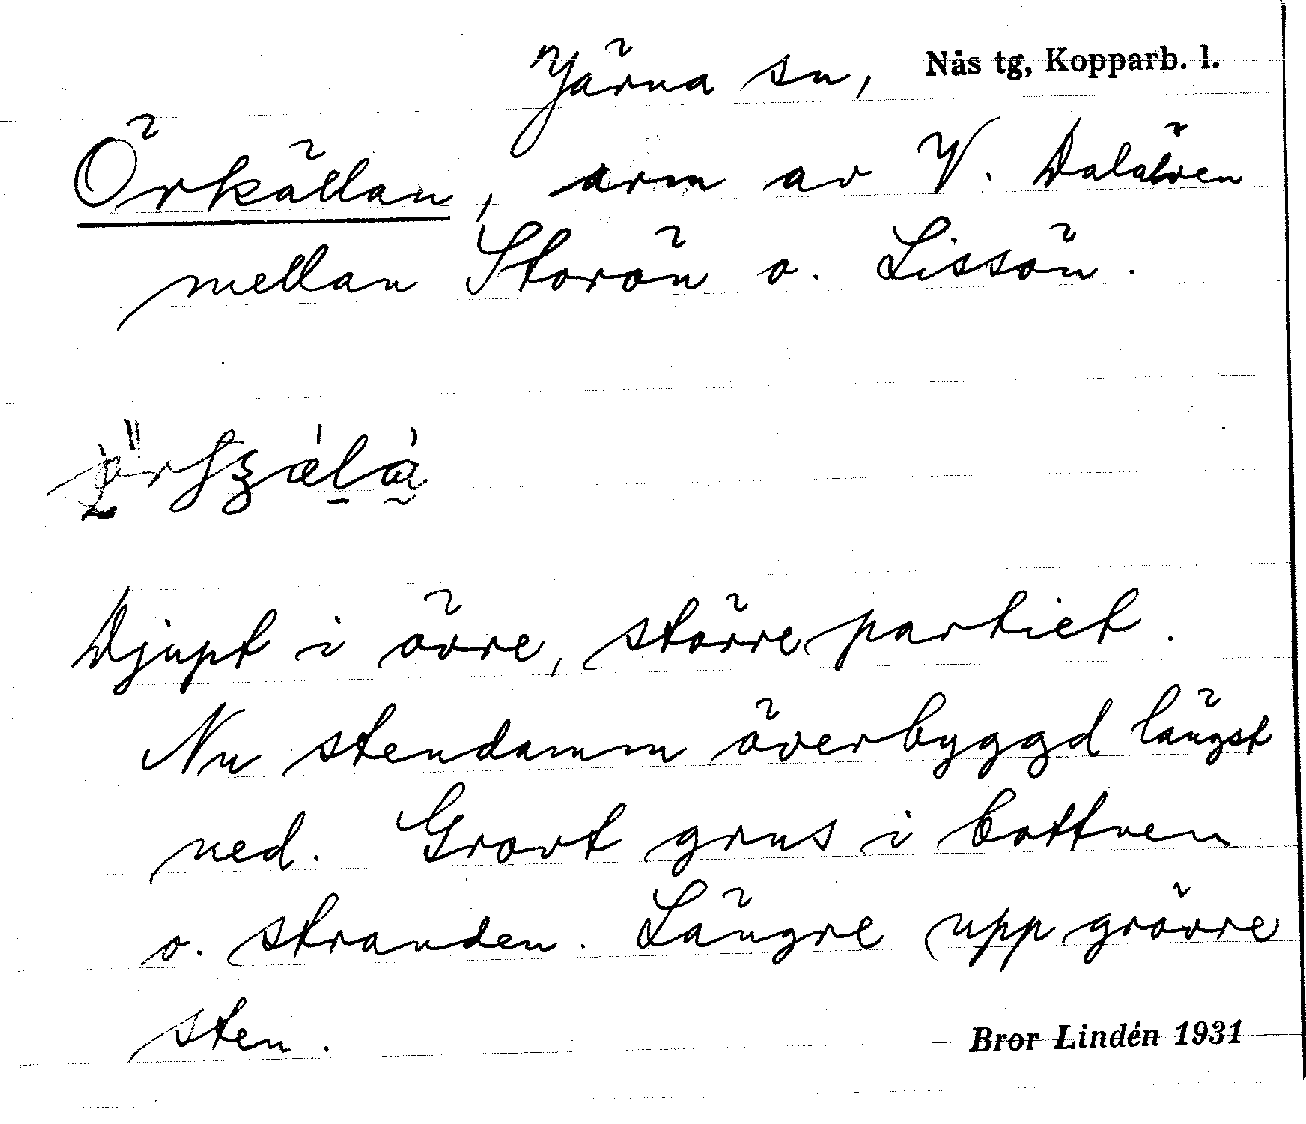 Järna sn, Nås tg, Kopparb. l.
Örkällan, arm av V. Dalälven
mellan Storön o. Lissön.
Djupt i övre, större partiet.
Nu stendamm överbyggd längst
ned. Grovt grus i bottnen
o. stranden. Längre upp grövre
sten.
Bror Lindén 1931